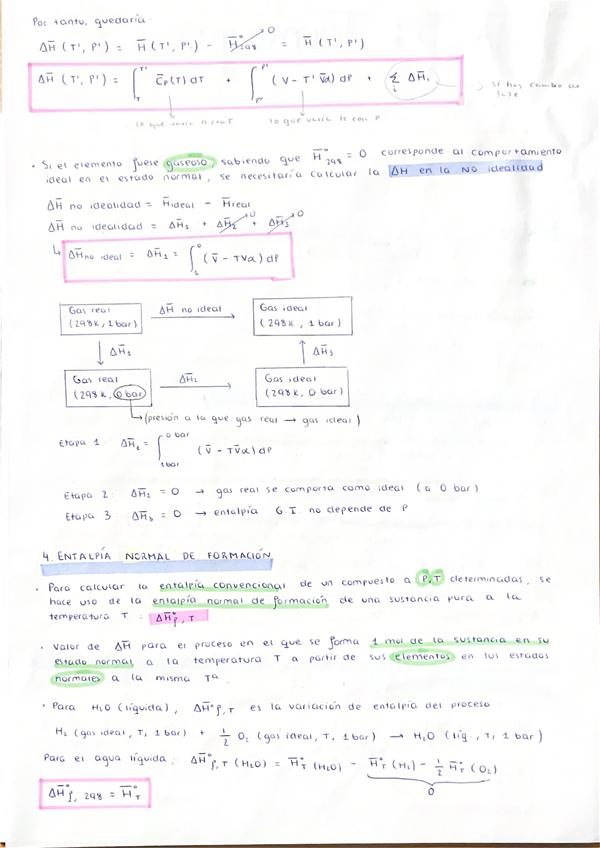 Por tanto, quedaría:
ΔH̅ (T', P') = H̅ (T', P') - H̅°298 →0 = H̅ (T', P')
ΔH̅ (T', P') = ∫ T' C̅p(T) dT + ∫ P' P° (V - T' V̅α) dP + Σi ΔH̅i → si hay cambio de fase
lo que varía H con T lo que varía H con P
· Si el elemento fuese gaseoso, sabiendo que H̅°298 = 0 corresponde al comportamiento
ideal en el estado normal, se necesitaría calcular la ΔH en la NO idealidad
ΔH̅ no idealidad = H̅ideal - H̅real
ΔH̅ no idealidad = ΔH̅1 + ΔH̅2 →0 + ΔH̅3 →0
↳ ΔH̅no ideal = ΔH̅1 = ∫ 0 1 (V̅ - TVα) dP
Gas real (298K, 1 bar) ΔH̅ no ideal → Gas ideal (298 K, 1 bar)
↓ ΔH̅1 ↑ ΔH̅3
Gas real (298K, 0 bar) ΔH̅2 → Gas ideal (298 K, 0 bar)
→ (presión a la que gas real → gas ideal)
Etapa 1: ΔH̅1 = ∫ 0 bar 1 bar (V̅ - TV̅α) dP
Etapa 2: ΔH̅2 = 0 → gas real se comporta como ideal (a 0 bar)
Etapa 3: ΔH̅3 = 0 → entalpía G.I. no depende de P
4. ENTALPÍA NORMAL DE FORMACIÓN
· Para calcular la entalpía convencional de un compuesto a P,T determinadas, se
hace uso de la entalpía normal de formación de una sustancia pura a la
temperatura T : ΔH̅°f, T
· Valor de ΔH̅ para el proceso en el que se forma 1 mol de la sustancia en su
estado normal a la temperatura T a partir de sus elementos en sus estados
normales a la misma Tª.
· Para H2O (líquida), ΔH̅°f,T es la variación de entalpía del proceso:
H2 (gas ideal, T, 1 bar) + 1/2 O2 (gas ideal, T, 1 bar) → H2O (líq., T, 1 bar)
Para el agua líquida: ΔH̅°f,T (H2O) = H̅°T (H2O) - H̅°T (H2) - 1/2 H̅°T (O2)
0
ΔH̅°f, 298 = H̅°T